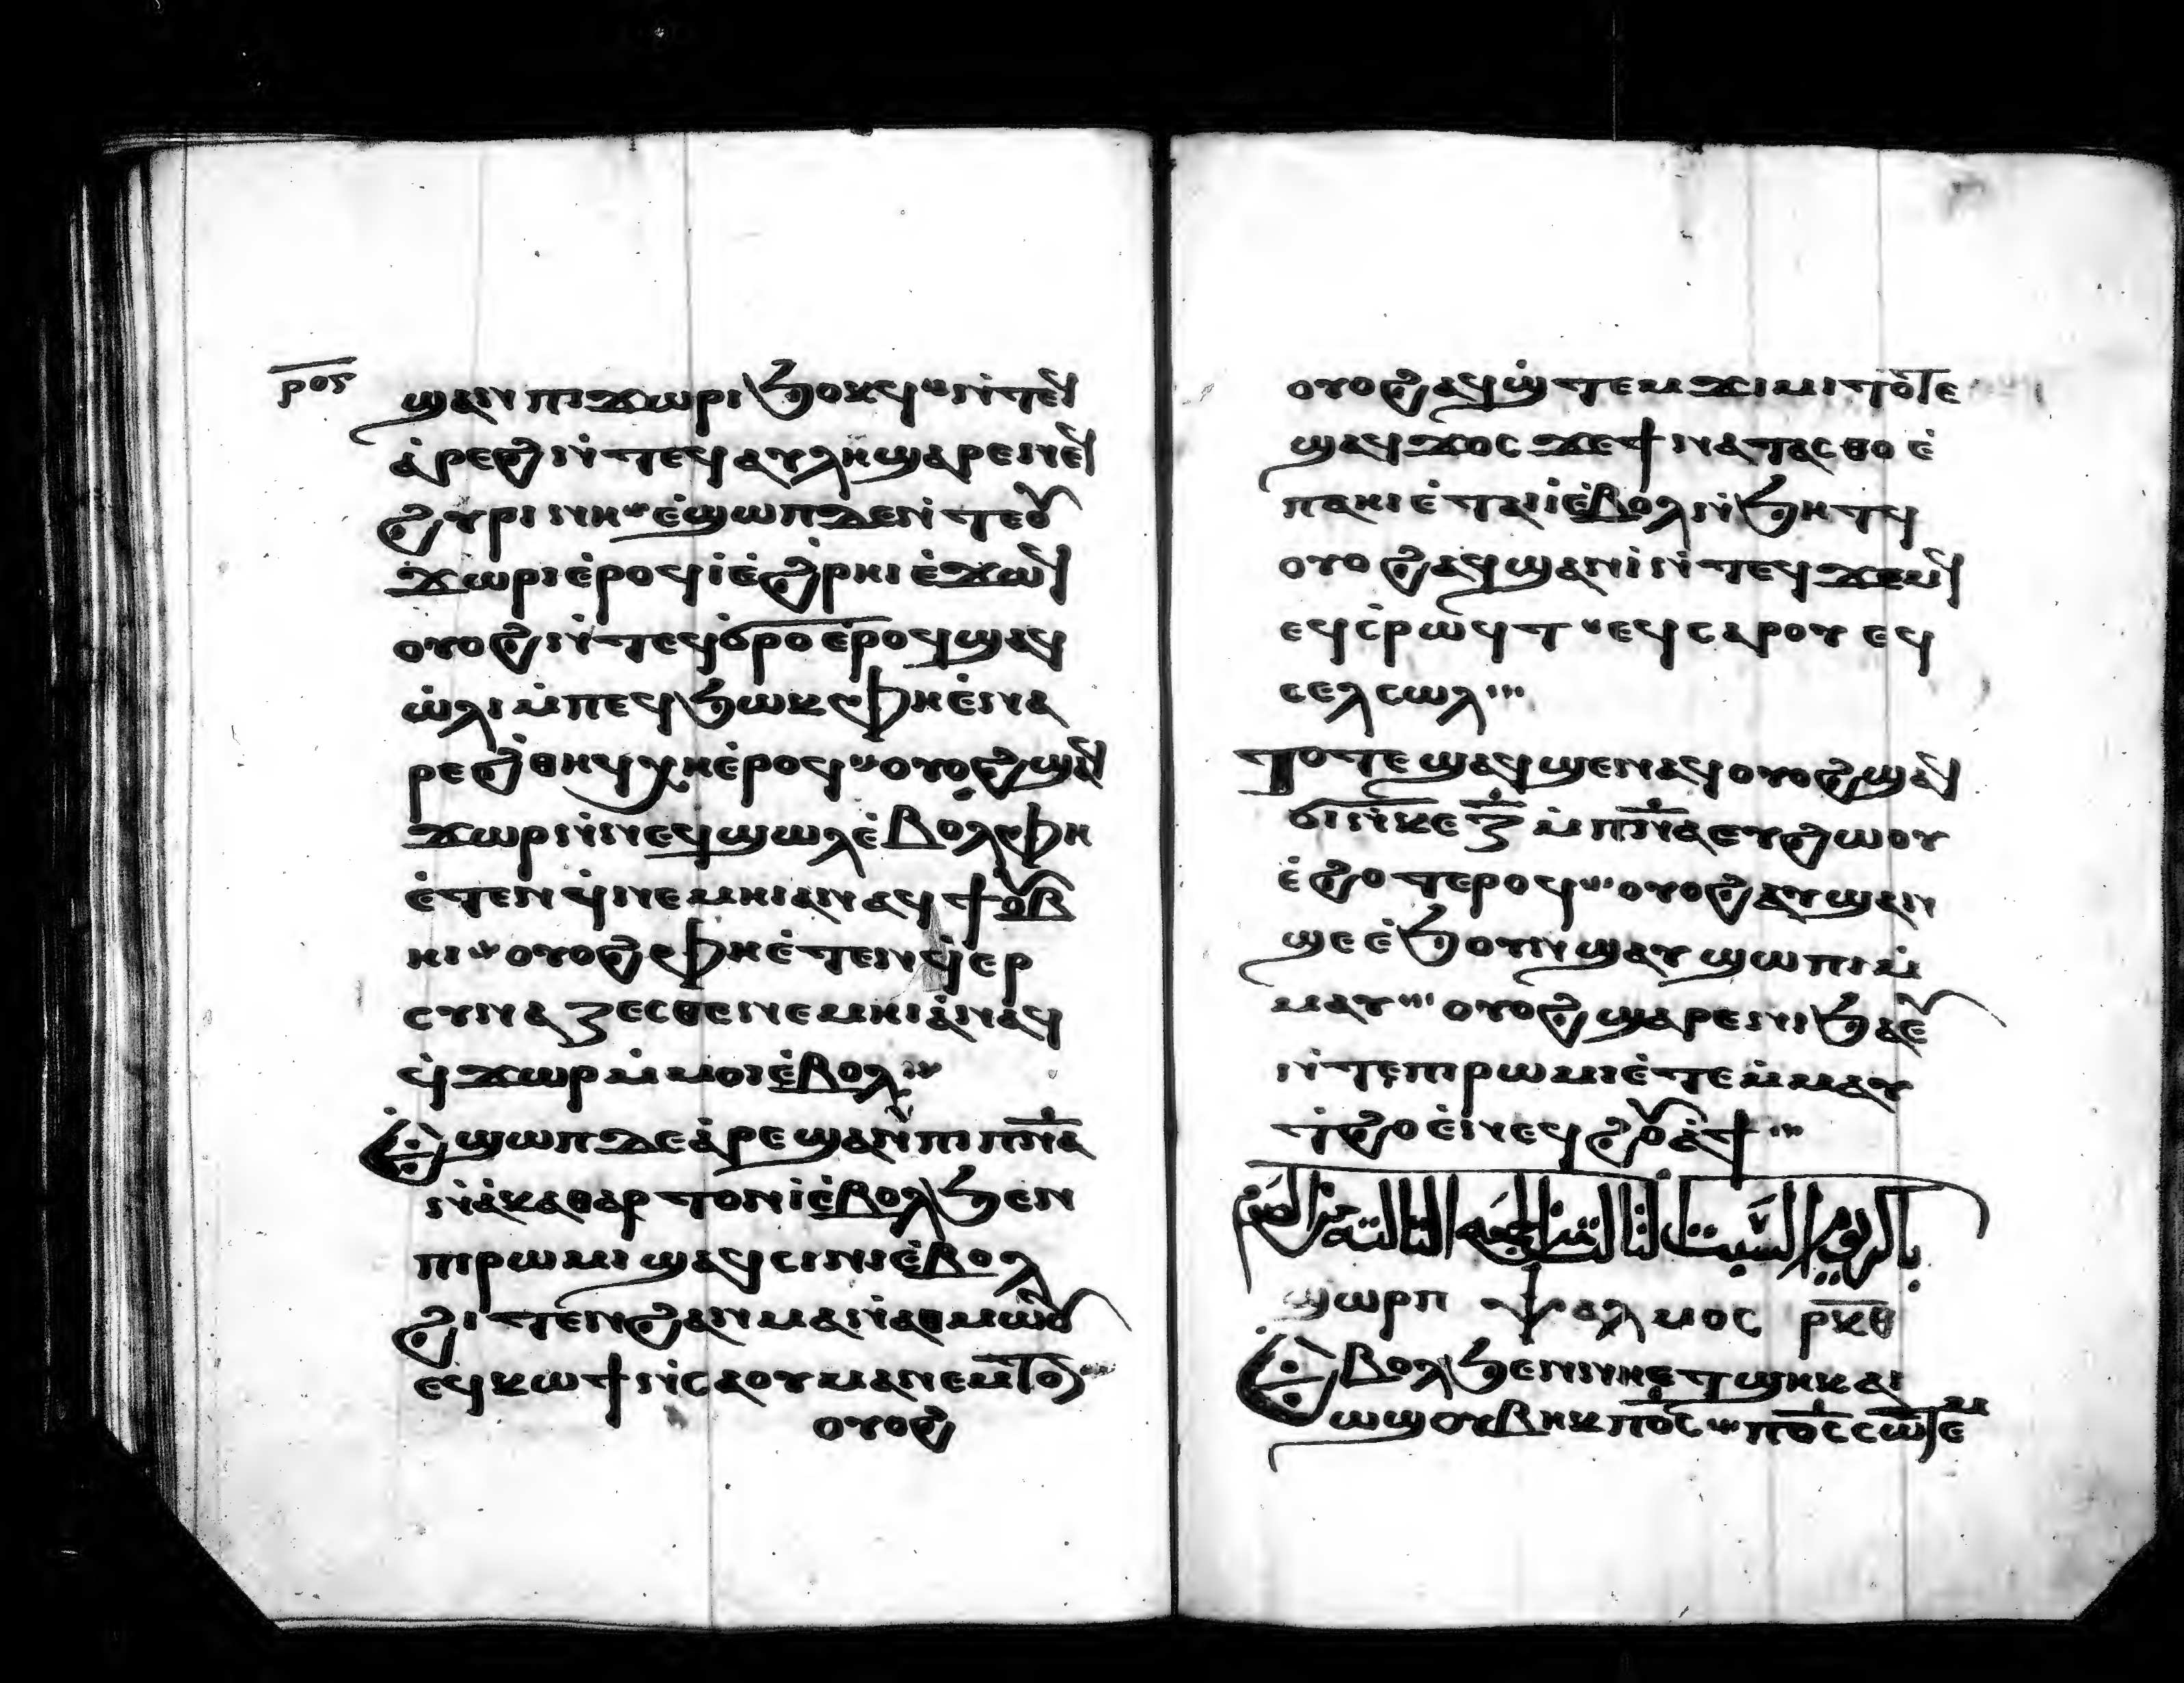 ⲣⲟⲋ
ϣⲁⲛ ⲡⲓϫⲱⲣⲓ ϧⲟⲕϥ ⲛ̀ⲧⲉϥ
ⲁ̀ⲣⲉϩ ⲛ̀ⲧⲉϥⲁⲩⲗⲏ ϣⲁⲣⲉ ⲛⲉϥ
ϩⲩⲣⲓⲛⲏ ⲉ̀ϣⲱⲡ ⲇⲉ ⲛ̀ⲧⲉⲟⲩ
ϫⲱⲣⲓ ⲉ̀ⲣⲟϥ ⲓ̀ ⲉ̀ϩ̀ⲣⲏⲓ ⲉ̀ϫⲱϥ
ⲟⲩⲟϩ ⲛ̀ⲧⲉϥϭⲣⲟ ⲉ̀ⲣⲟϥ ϣⲁϥ
ⲱ̀ⲗⲓ ⲙ̀ⲡⲉϥϧⲱⲕ ⲫⲏ ⲉ̀ⲛⲁ
ⲣⲉ ϩ̀ⲑⲏϥ ⲭⲏ ⲉ̀ⲣⲟϥ ⲟⲩⲟϩ ϣⲁϥ
ϫⲱⲣ ⲛ̀ⲛⲉϥϣⲱⲗ ⲉ̀ⲃⲟⲗ ⲫⲏ
ⲉ̀ⲧⲉⲛϥ̀ⲛⲉⲙⲏⲓ ⲁⲛ ⲁϥϯⲟⲩⲃ
ⲏⲓ ⲟⲩⲟϩ ⲫⲏ ⲉ̀ⲧⲉⲛϥ̀ⲉⲣ
ⲥⲩⲛⲁⲍⲉⲥⲑⲉ ⲛⲉⲙⲏⲓ ⲁ̀ⲛ ⲁϥ
ϥ̀ϫⲱⲣ ⲙ̀ⲙⲟⲓ ⲉ̀ⲃⲟⲗ
Ⲉ̀ϣⲱⲡ ⲇⲉ ⲁ̀ⲣⲉϣⲁⲛ ⲡⲓⲡ̅ⲛ̅ⲁ̅
ⲛ̀ⲁ̀ⲕⲁⲑⲁⲣⲧⲟⲛ ⲓ̀ ⲉ̀ⲃⲟⲗ ϧⲉⲛ
ⲡⲓⲣⲱⲙⲓ ϣⲁϥⲥⲓⲛⲓ ⲉ̀ⲃⲟⲗ
ϩⲓⲧⲉⲛ ϩⲁⲛⲙⲁ ⲛ̀ⲁⲑⲙⲱⲟⲩ
ⲉϥⲕⲱϯ ⲛ̀ⲥⲁ ⲟⲩⲙⲁ ⲛⲉⲙⲧⲟⲛ
ⲟⲩⲟϩ
ⲟⲩⲟϩ ⲁϥϣ̀ⲧⲉⲙϫⲓⲙⲓ ⲧⲟⲧⲉ
ϣⲁϥϫⲟⲥ ϫⲉ ϯⲛⲁⲧⲁⲥⲑⲟ ⲉ̀
ⲡⲁⲏⲓ ⲉ̀ⲧⲁⲓⲓ̀ ⲉ̀ⲃⲟⲗ ⲛ̀ϧⲏⲧϥ
ⲟⲩⲟϩ ⲁϥϣⲁⲛⲓ̀ ⲛ̀ⲧⲉϥϫⲉⲙϥ
ⲉϥⲥ̀ⲣⲱϥⲧ ⲉϥⲥⲁⲣⲟⲩ ⲉϥ
ⲥⲉⲗⲥⲱⲗ
Ⲧⲟⲧⲉ ϣⲁϥϣⲉⲛⲁϥ ⲟⲩⲟϩ ϣⲁϥ
ϭⲓ ⲛ̀ⲕⲉ ⲍ̅ ⲙ̀ⲡ̅ⲛ̅ⲁ̅ ⲉⲩϩⲱⲟⲩ
ⲉ̀ϩⲟⲧⲉⲣⲟϥ ⲟⲩⲟϩ ⲁⲩϣⲁⲛ
ϣⲉ ⲉ̀ϧⲟⲩⲛ ϣⲁⲩϣⲱⲡⲓ ⲙ̀
ⲙⲁⲩ ⲟⲩⲟϩ ϣⲁⲣⲉ ⲛⲓϧⲁⲉⲩ
ⲛ̀ⲧⲉ ⲡⲓⲣⲱⲙⲓ ⲉ̀ⲧⲉⲙ̀ⲙⲁⲩ
ⲧ̀ϩⲟ ⲉ̀ⲛⲉϥϩⲟⲩⲁ̀ϯ
باكر يوم السبت
ϣⲱⲣⲡ ⲯⲁⲗⲙⲟⲥ ⲣⲕⲑ
Ⲉ̀ⲃⲟⲗ ϧⲉⲛ ⲛⲏ ⲉⲧϣⲏⲕ ⲁⲓ
ⲱϣ ⲟⲩⲃⲏⲕ ⲡⲟ̅ⲥ̅ ⲡⲟ̅ⲥ̅ ⲥⲱⲧⲉⲙ